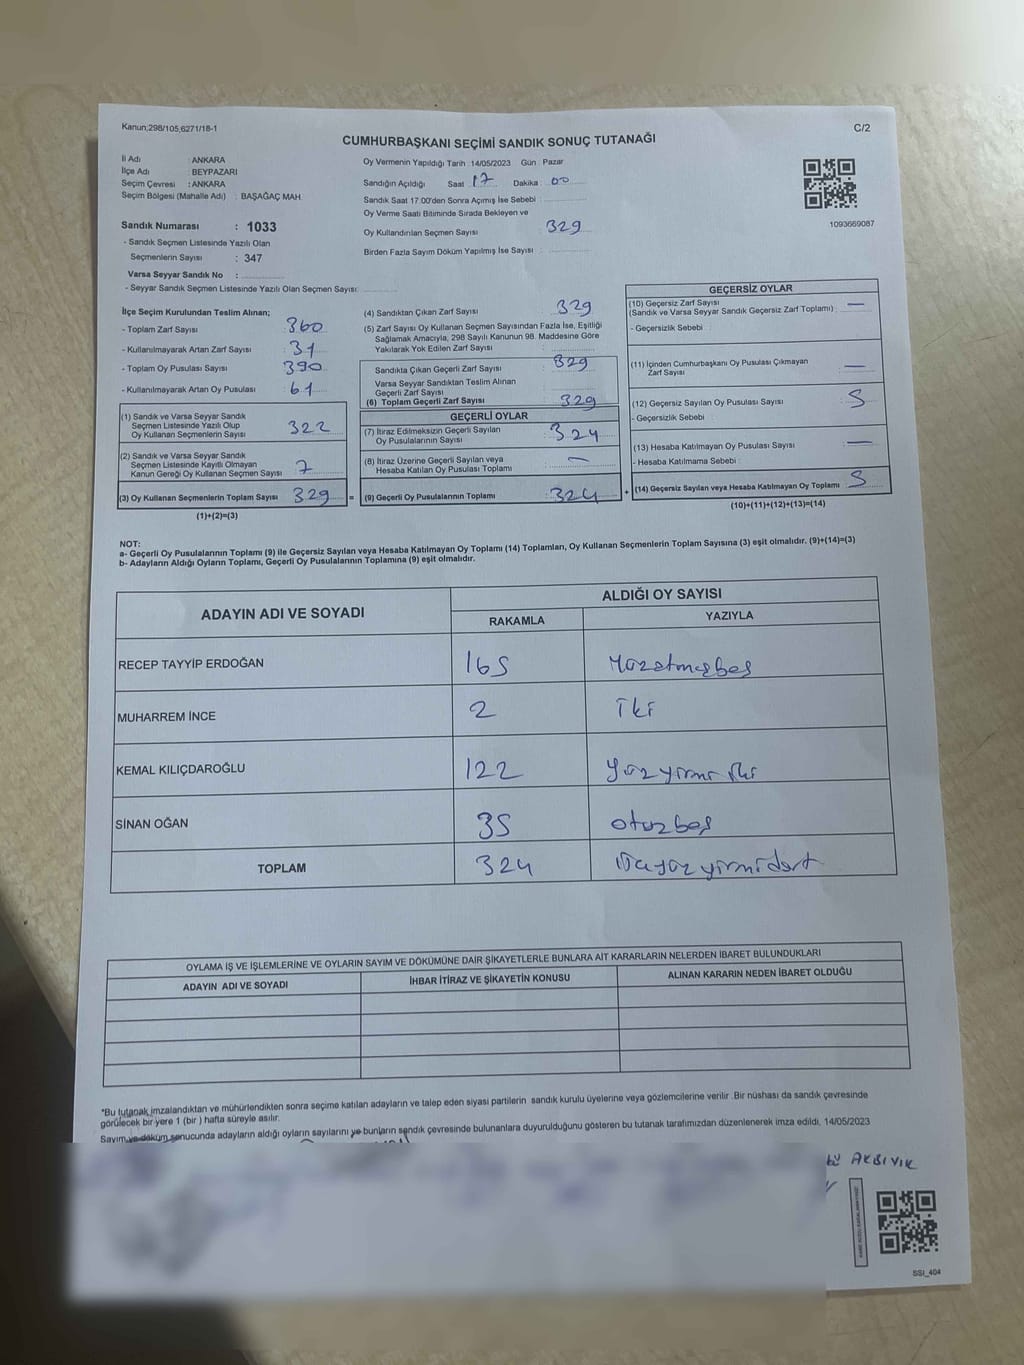 Kanun;298/105,6271/18-1
C/2
CUMHURBAŞKANI SEÇİMİ SANDIK SONUÇ TUTANAĞI
İl Adı : ANKARA
İlçe Adı : BEYPAZARI
Seçim Çevresi : ANKARA
Seçim Bölgesi (Mahalle Adı) : BAŞAĞAÇ MAH.
Sandık Numarası : 1033
- Sandık Seçmen Listesinde Yazılı Olan
Seçmenlerin Sayısı : 347
Varsa Seyyar Sandık No :
- Seyyar Sandık Seçmen Listesinde Yazılı Olan Seçmen Sayısı:
Oy Vermenin Yapıldığı Tarih : 14/05/2023 Gün : Pazar
Sandığın Açıldığı Saat 17 Dakika : 00
Sandık Saat 17.00'den Sonra Açımış İse Sebebi :
Oy Verme Saati Bitiminde Sırada Bekleyen ve
Oy Kullandırılan Seçmen Sayısı 329
Birden Fazla Sayım Döküm Yapılmış İse Sayısı :
1093669087
İlçe Seçim Kurulundan Teslim Alınan;
- Toplam Zarf Sayısı : 360
- Kullanılmayarak Artan Zarf Sayısı : 31
- Toplam Oy Pusulası Sayısı : 390
- Kullanılmayarak Artan Oy Pusulası : 61
(1) Sandık ve Varsa Seyyar Sandık
Seçmen Listesinde Yazılı Olup
Oy Kullanan Seçmenlerin Sayısı 322
(2) Sandık ve Varsa Seyyar Sandık
Seçmen Listesinde Kayıtlı Olmayan
Kanun Gereği Oy Kullanan Seçmen Sayısı : 7
(3) Oy Kullanan Seçmenlerin Toplam Sayısı : 329 =
(1)+(2)=(3)
(4) Sandıktan Çıkan Zarf Sayısı 329
(5) Zarf Sayısı Oy Kullanan Seçmen Sayısından Fazla İse, Eşitliği
Sağlamak Amacıyla, 298 Sayılı Kanunun 98. Maddesine Göre
Yakılarak Yok Edilen Zarf Sayısı :
Sandıkta Çıkan Geçerli Zarf Sayısı 329
Varsa Seyyar Sandıktan Teslim Alınan
Geçerli Zarf Sayısı
(6) Toplam Geçerli Zarf Sayısı 329
GEÇERLİ OYLAR
(7) İtiraz Edilmeksizin Geçerli Sayılan
Oy Pusulalarının Sayısı : 324
(8) İtiraz Üzerine Geçerli Sayılan veya
Hesaba Katılan Oy Pusulası Toplamı : —
(9) Geçerli Oy Pusulalarının Toplamı : 324 +
GEÇERSİZ OYLAR
(10) Geçersiz Zarf Sayısı
(Sandık ve Varsa Seyyar Sandık Geçersiz Zarf Toplamı) : —
- Geçersizlik Sebebi :
(11) İçinden Cumhurbaşkanı Oy Pusulası Çıkmayan
Zarf Sayısı —
(12) Geçersiz Sayılan Oy Pusulası Sayısı : 5
- Geçersizlik Sebebi :
(13) Hesaba Katılmayan Oy Pusulası Sayısı : —
- Hesaba Katılmama Sebebi :
(14) Geçersiz Sayılan veya Hesaba Katılmayan Oy Toplamı : 5
(10)+(11)+(12)+(13)=(14)
NOT:
a- Geçerli Oy Pusulalarının Toplamı (9) ile Geçersiz Sayılan veya Hesaba Katılmayan Oy Toplamı (14) Toplamları, Oy Kullanan Seçmenlerin Toplam Sayısına (3) eşit olmalıdır. (9)+(14)=(3)
b- Adayların Aldığı Oyların Toplamı, Geçerli Oy Pusulalarının Toplamına (9) eşit olmalıdır.
ADAYIN ADI VE SOYADI
ALDIĞI OY SAYISI
RAKAMLA YAZIYLA
RECEP TAYYİP ERDOĞAN 165 Yüzatmışbeş
MUHARREM İNCE 2 İki
KEMAL KILIÇDAROĞLU 122 Yüzyirmi iki
SİNAN OĞAN 35 otuzbeş
TOPLAM 324 Üçyüzyirmidört
OYLAMA İŞ VE İŞLEMLERİNE VE OYLARIN SAYIM VE DÖKÜMÜNE DAİR ŞİKAYETLERLE BUNLARA AİT KARARLARIN NELERDEN İBARET BULUNDUKLARI
ADAYIN ADI VE SOYADI İHBAR İTİRAZ VE ŞİKAYETİN KONUSU ALINAN KARARIN NEDEN İBARET OLDUĞU
*Bu tutanak imzalandıktan ve mühürlendikten sonra seçime katılan adayların ve talep eden siyasi partilerin sandık kurulu üyelerine veya gözlemcilerine verilir. Bir nüshası da sandık çevresinde
görülecek bir yere 1 (bir ) hafta süreyle asılır.
Sayım ve döküm sonucunda adayların aldığı oyların sayılarını ve bunların sandık çevresinde bulunanlara duyurulduğunu gösteren bu tutanak tarafımızdan düzenlenerek imza edildi. 14/05/2023
AKBIYIK
SSI_404